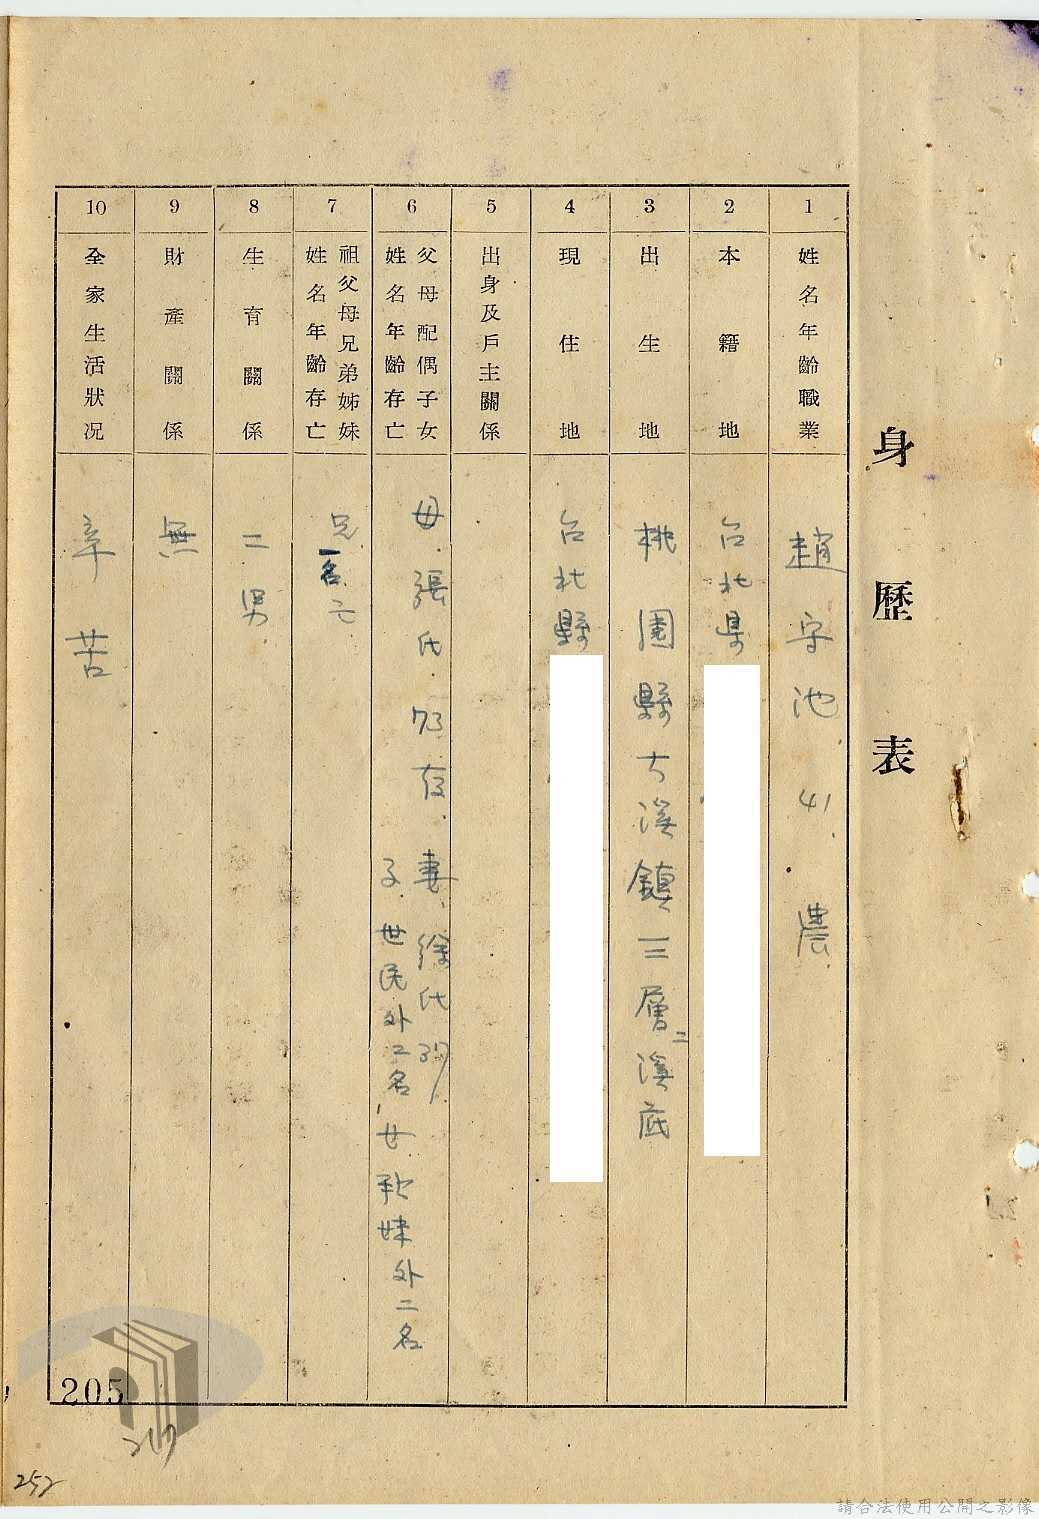 身歷表
1
姓名年齡職業
趙字池 41. 農.
2
本籍地
台北県
3
出生地
桃園縣大溪鎮三層二溪底
4
現住地
台北縣
5
出身及戶主關係
6
父母配偶子女
姓名年齡存亡
母.張氏.73存.妻.徐氏37
子.世民外二名,女 秋妹外二名
7
祖父母兄弟姊妹
姓名年齡存亡
兄一名亡
8
生育關係
二男
9
財產關係
無
10
全家生活狀況
辛苦
205
252
請合法使用公開之影像